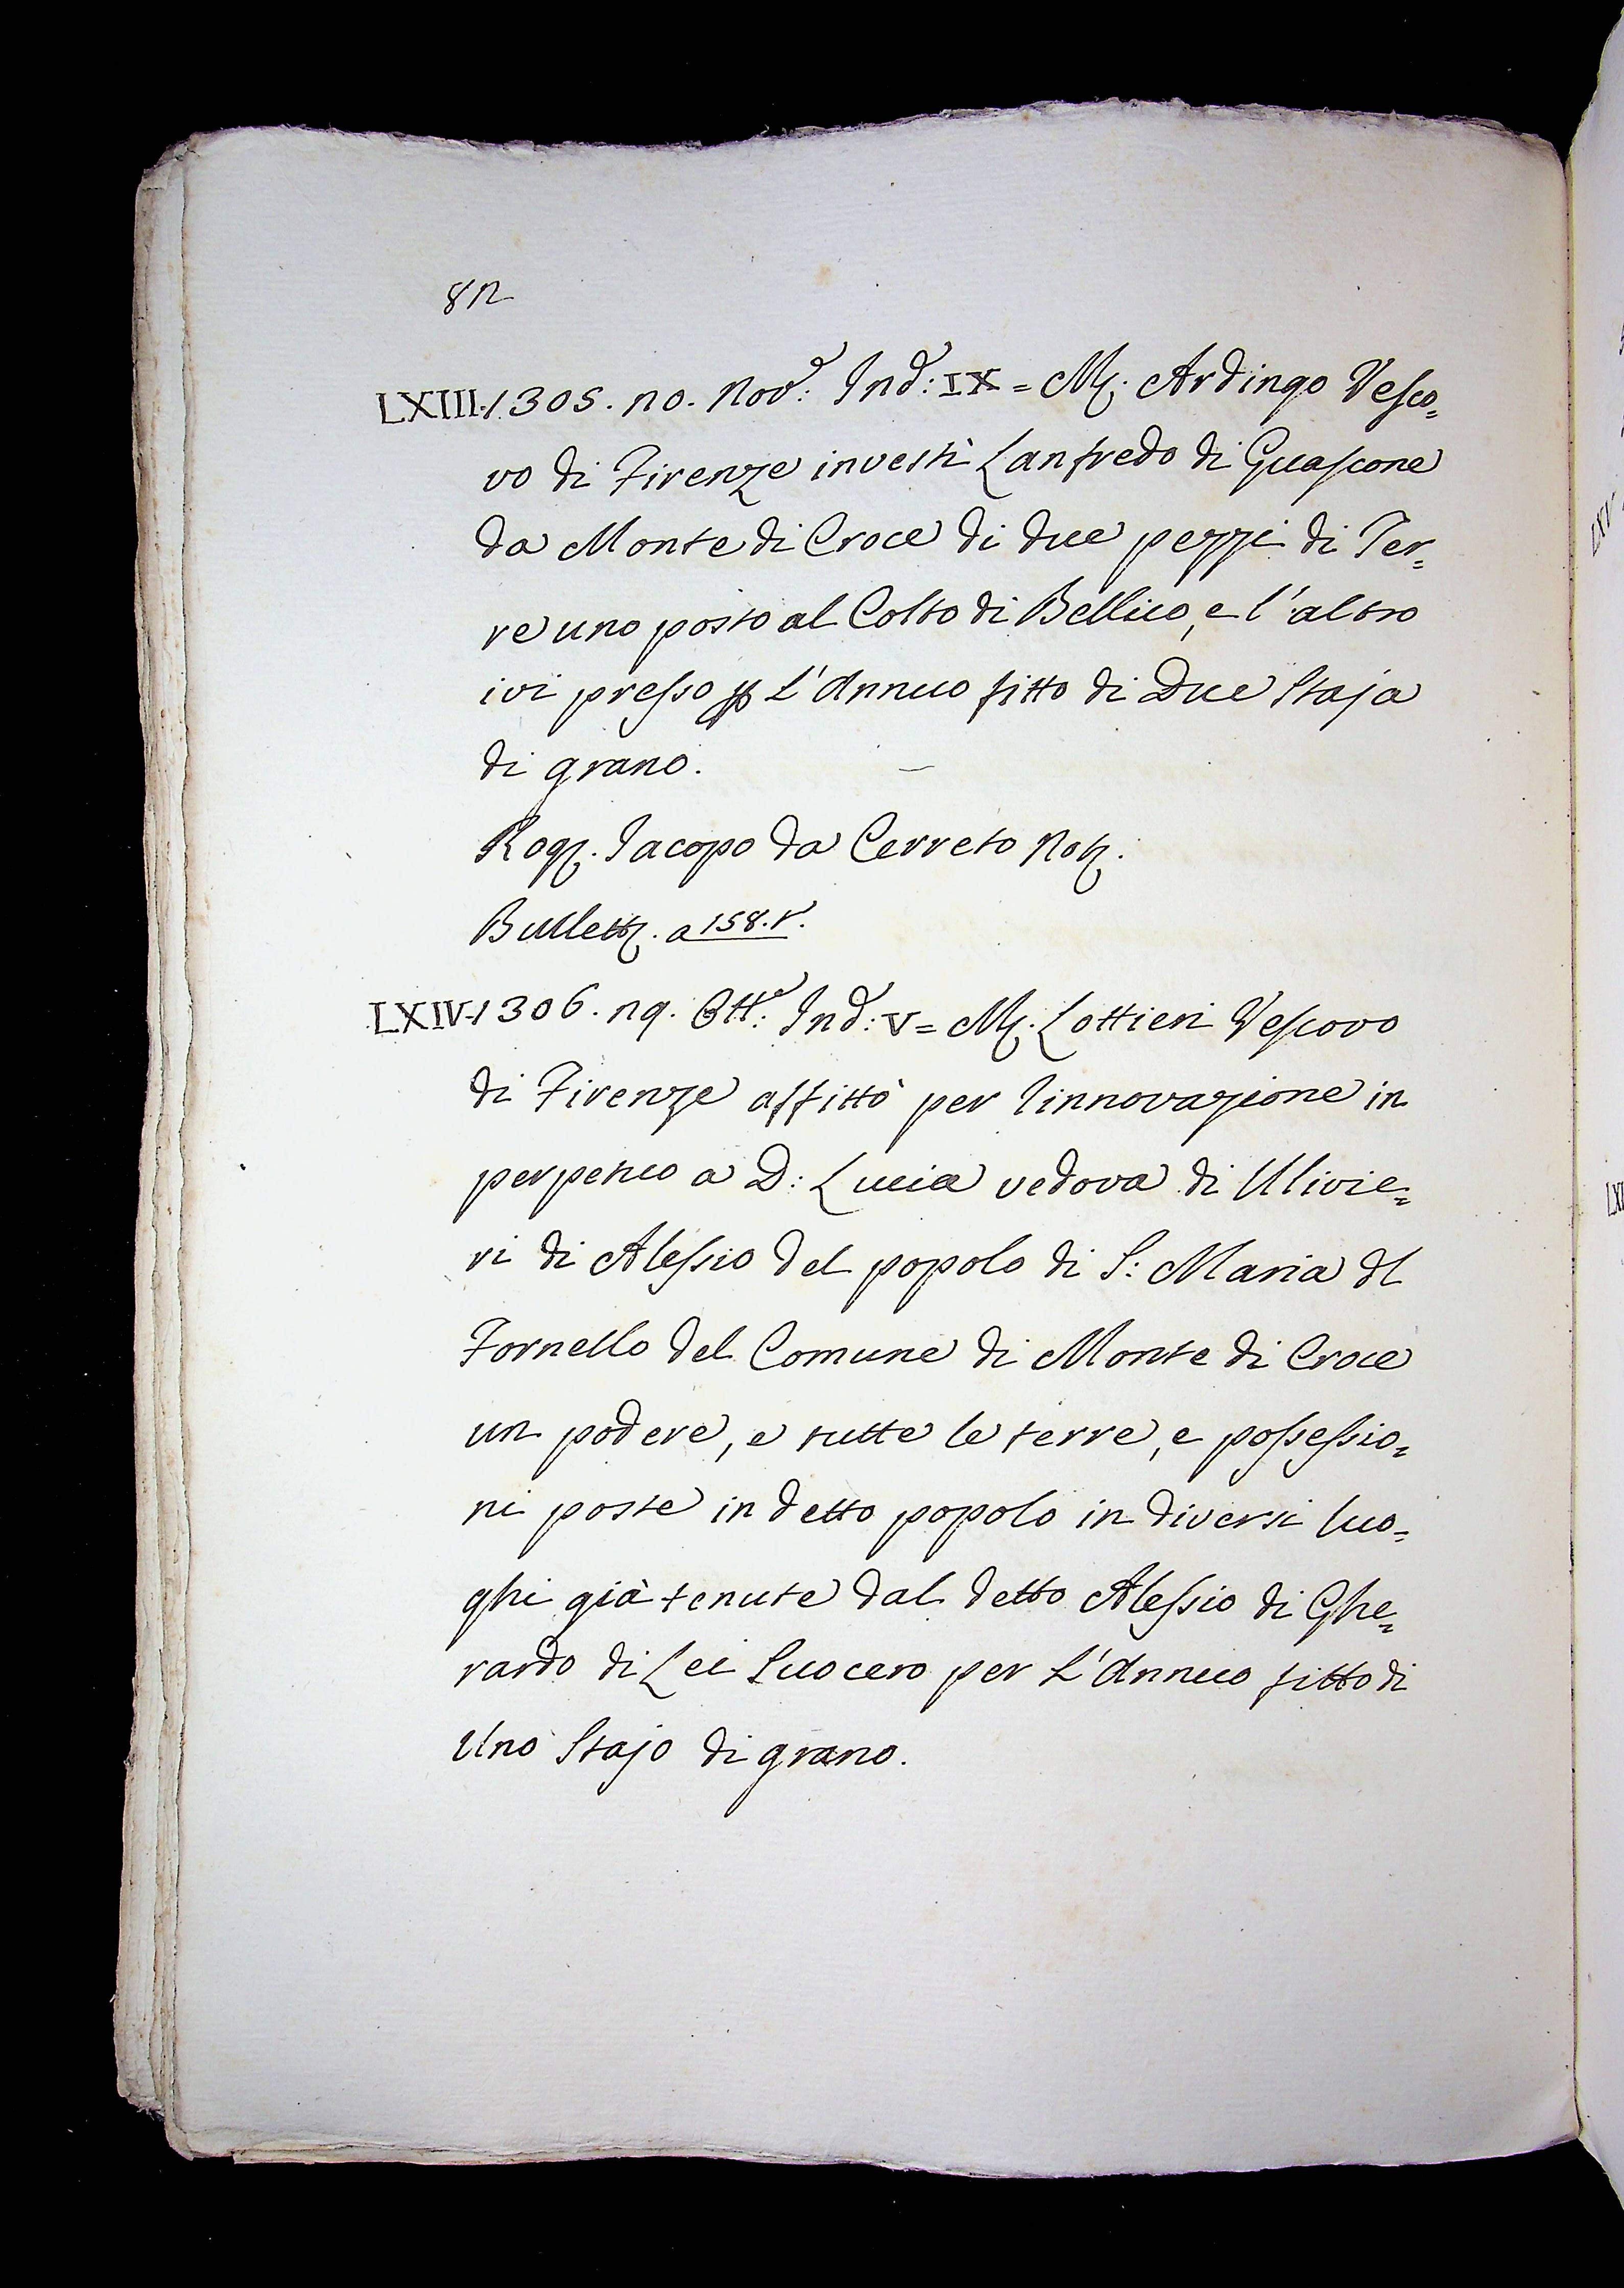 82
LXIII. 1305. 20. Nov.e: Ind.e: IX = M. Ardingo Vesco=
vo di Firenze investì Lanfredo di Guascone
da Monte di Croce di due pezzi di Ter=
re uno posto al Colto di Bellico, e l'altro
ivi presso p L'Annuo fitto di Due Staja
di grano.
Rog. Jacopo da Cerreto Not.
Bullett. a 158. r.
LXIV. 1306. 29. Ott.e: Ind.e: V = M. Lottieri Vescovo
di Firenze affittò per Rinnovazione in
perpetuo a D: Lucia vedova di Ulivie=
ri di Alessio del popolo di S: Maria dl
Fornello del Comune di Monte di Croce
un podere, e tutte le terre, e possessio=
ni poste in detto popolo in diversi luo=
ghi già tenute dal detto Alessio di Ghe=
rardo di Lei Suocero per L'Annuo fitto di
Uno Stajo di grano.